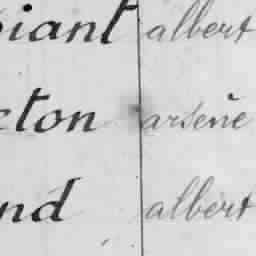 piant albert
eton arsene
nd albert